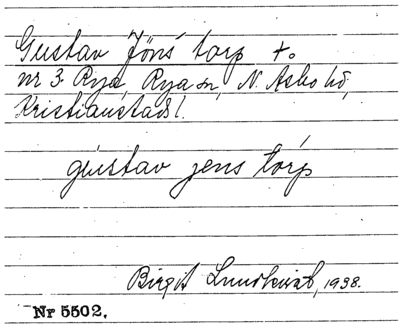 Gustav Jöns torp t.
nr 3 Rya, Rya sn, N. Åsbo hd,
Kristianstads l.
gustav jens torp
Birgit Lundkvist, 1938.
Nr 5502.